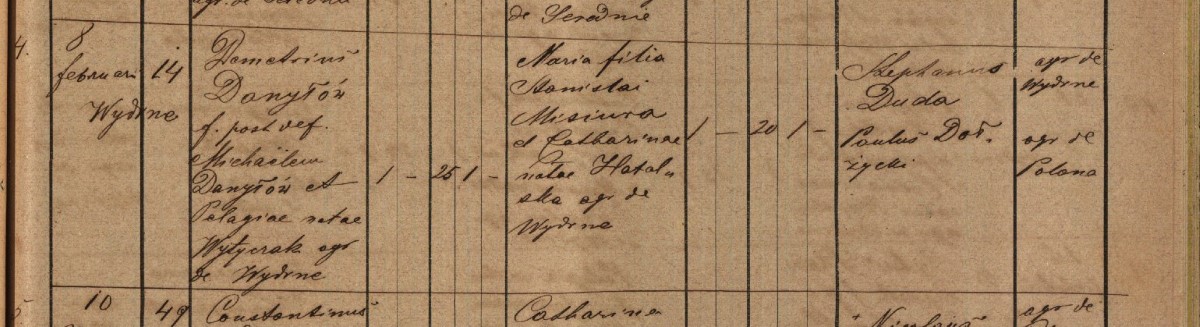 agr. de Serednie
de Serednie
4.
8
februari
Wydrne
14
Demetriuš
Danyłów
f. post def.
Michaëlem
Danyłów et
Pelagiae natae
Wytyczak agr
de Wydrne
1 – 25 1 –
Maria filia
Stanislai
Misiura
et Catharinae
natae Hatal„
ska agr de
Wydrne
1 – 20 1 –
Stephanus
Duda
Pauluš Doł„
życki
agr de
Wydrne
agr de
Polana
10
49
Constantinuš
Catharina
Nicolauš
agr de